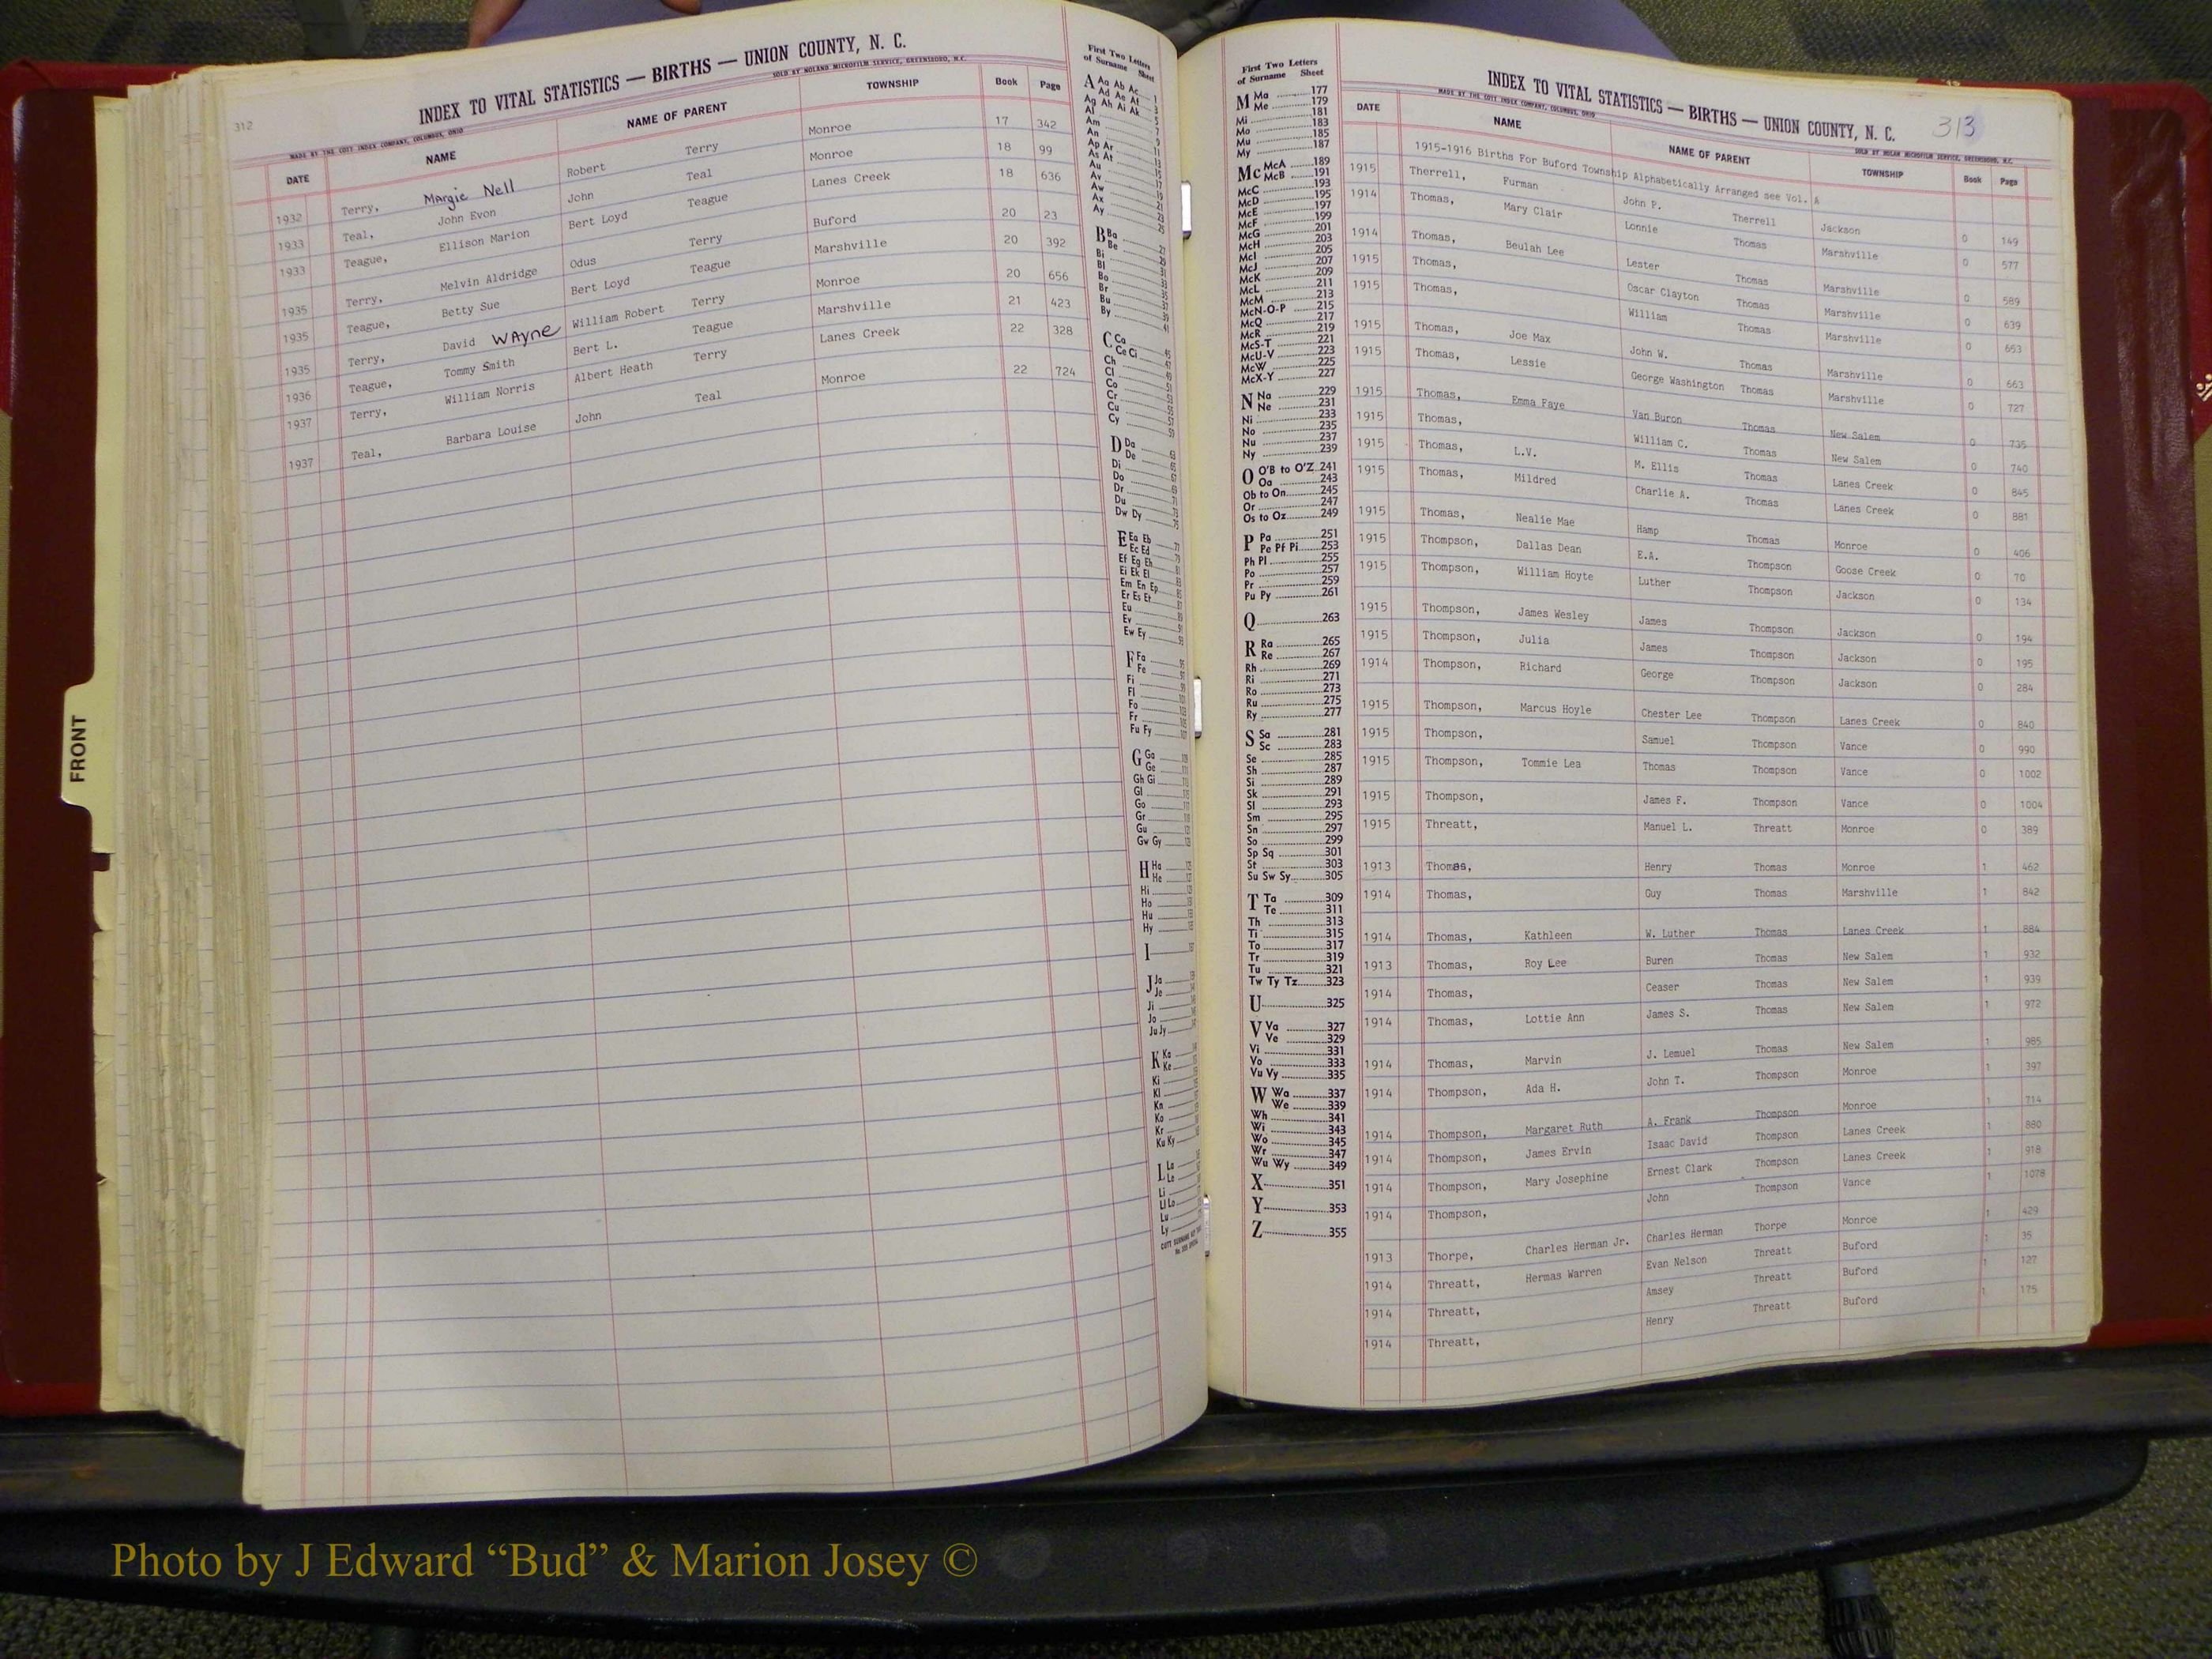 312
INDEX TO VITAL STATISTICS — BIRTHS — UNION COUNTY, N. C.
MADE BY THE COTT INDEX COMPANY, COLUMBUS, OHIO SOLD BY NOLAND MICROFILM SERVICE, GREENSBORO, N.C.
DATE NAME NAME OF PARENT TOWNSHIP Book Page
1932 Terry, Margie Nell Robert Terry Monroe 17 342
1933 Teal, John Evon John Teal Monroe 18 99
1933 Teague, Ellison Marion Bert Loyd Teague Lanes Creek 18 636
1935 Terry, Melvin Aldridge Odus Terry Buford 20 23
1935 Teague, Betty Sue Bert Loyd Teague Marshville 20 392
1935 Terry, David WAyne William Robert Terry Monroe 20 656
1936 Teague, Tommy Smith Bert L. Teague Marshville 21 423
1937 Terry, William Norris Albert Heath Terry Lanes Creek 22 328
1937 Teal, Barbara Louise John Teal Monroe 22 724
First Two Letters
of Surname Sheet
A Aa Ab Ac
Ad Ae Af
Ag Ah Ai Ak
Al
Am
An
Ap Ar
As At
Au
Av
Aw
Ax
Ay
B Ba
Be
Bi
Bl
Bo
Br
Bu
By
C Ca
Ce Ci
Ch
Cl
Co
Cr
Cu
Cy
D Da
De
Di
Do
Dr
Du
Dw Dy
E Ea Eb
Ec Ed
Ef Eg Eh
Ei Ek El
Em En Ep
Er Es Et
Eu
Ev
Ew Ey
F Fa
Fe
Fi
Fl
Fo
Fr
Fu Fy
G Ga
Ge
Gh Gi
Gl
Go
Gr
Gu
Gw Gy
H Ha
He
Hi
Ho
Hu
Hy
I
J Ja
Je
Ji
Jo
Ju Jy
K Ka
Ke
Ki
Kl
Kn
Ko
Kr
Ku Ky
L La
Le
Li
Ll Lo
Lu
Ly
FRONT
First Two Letters
of Surname Sheet
M Ma 177
Me 179
Mi 181
Mo 183
Mu 185
My 187
Mc McA 189
McB 191
McC 193
McD 195
McE 197
McF 199
McG 201
McH 203
McI 205
McJ 207
McK 209
McL 211
McM 213
McN-O-P 215
McQ 217
McR 219
McS-T 221
McU-V 223
McW 225
McX-Y 227
N Na 229
Ne 231
Ni 233
No 235
Nu 237
Ny 239
O O'B to O'Z 241
Oa 243
Ob to On 245
Or 247
Os to Oz 249
P Pa 251
Pe Pf Pi 253
Ph Pl 255
Po 257
Pr 259
Pu Py 261
Q 263
R Ra 265
Re 267
Rh 269
Ri 271
Ro 273
Ru 275
Ry 277
S Sa 281
Sc 283
Se 285
Sh 287
Si 289
Sk 291
Sl 293
Sm 295
Sn 297
So 299
Sp Sq 301
St 303
Su Sw Sy 305
T Ta 309
Te 311
Th 313
Ti 315
To 317
Tr 319
Tu 321
Tw Ty Tz 323
U 325
V Va 327
Ve 329
Vi 331
Vo 333
Vu Vy 335
W Wa 337
We 339
Wh 341
Wi 343
Wo 345
Wr 347
Wu Wy 349
X 351
Y 353
Z 355
INDEX TO VITAL STATISTICS — BIRTHS — UNION COUNTY, N. C. 313
MADE BY THE COTT INDEX COMPANY, COLUMBUS, OHIO SOLD BY NOLAN MICROFILM SERVICE, GREENSBORO, N.C.
DATE NAME NAME OF PARENT TOWNSHIP Book Page
1915-1916 Births For Buford Township Alphabetically Arranged see Vol. A
1915 Therrell, Furman John P. Therrell Jackson 0 149
1914 Thomas, Mary Clair Lonnie Thomas Marshville 0 577
1914 Thomas, Beulah Lee Lester Thomas Marshville 0 589
1915 Thomas, Oscar Clayton Thomas Marshville 0 639
1915 Thomas, William Thomas Marshville 0 653
1915 Thomas, Joe Max John W. Thomas Marshville 0 663
1915 Thomas, Lessie George Washington Thomas Marshville 0 727
1915 Thomas, Emma Faye Van Buron Thomas New Salem 0 735
1915 Thomas, William C. Thomas New Salem 0 740
1915 Thomas, L.V. M. Ellis Thomas Lanes Creek 0 845
1915 Thomas, Mildred Charlie A. Thomas Lanes Creek 0 881
1915 Thomas, Nealie Mae Hamp Thomas Monroe 0 406
1915 Thompson, Dallas Dean E.A. Thompson Goose Creek 0 70
1915 Thompson, William Hoyte Luther Thompson Jackson 0 134
1915 Thompson, James Wesley James Thompson Jackson 0 194
1915 Thompson, Julia James Thompson Jackson 0 195
1914 Thompson, Richard George Thompson Jackson 0 284
1915 Thompson, Marcus Hoyle Chester Lee Thompson Lanes Creek 0 840
1915 Thompson, Samuel Thompson Vance 0 990
1915 Thompson, Tommie Lea Thomas Thompson Vance 0 1002
1915 Thompson, James F. Thompson Vance 0 1004
1915 Threatt, Manuel L. Threatt Monroe 0 389
1913 Thomas, Henry Thomas Monroe 1 462
1914 Thomas, Guy Thomas Marshville 1 842
1914 Thomas, Kathleen W. Luther Thomas Lanes Creek 1 884
1913 Thomas, Roy Lee Buren Thomas New Salem 1 932
1914 Thomas, Ceaser Thomas New Salem 1 939
1914 Thomas, Lottie Ann James S. Thomas New Salem 1 972
1914 Thomas, Marvin J. Lemuel Thomas New Salem 1 985
1914 Thompson, Ada H. John T. Thompson Monroe 1 397
1914 Thompson, Margaret Ruth A. Frank Thompson Monroe 1 714
1914 Thompson, James Ervin Isaac David Thompson Lanes Creek 1 880
1914 Thompson, Mary Josephine Ernest Clark Thompson Lanes Creek 1 918
1914 Thompson, John Thompson Vance 1 1078
1913 Thorpe, Charles Herman Jr. Charles Herman Thorpe Monroe 1 429
1914 Threatt, Hermas Warren Evan Nelson Threatt Buford 1 35
1914 Threatt, Amsey Threatt Buford 1 127
1914 Threatt, Henry Threatt Buford 1 175
Photo by J Edward “Bud” & Marion Josey ©